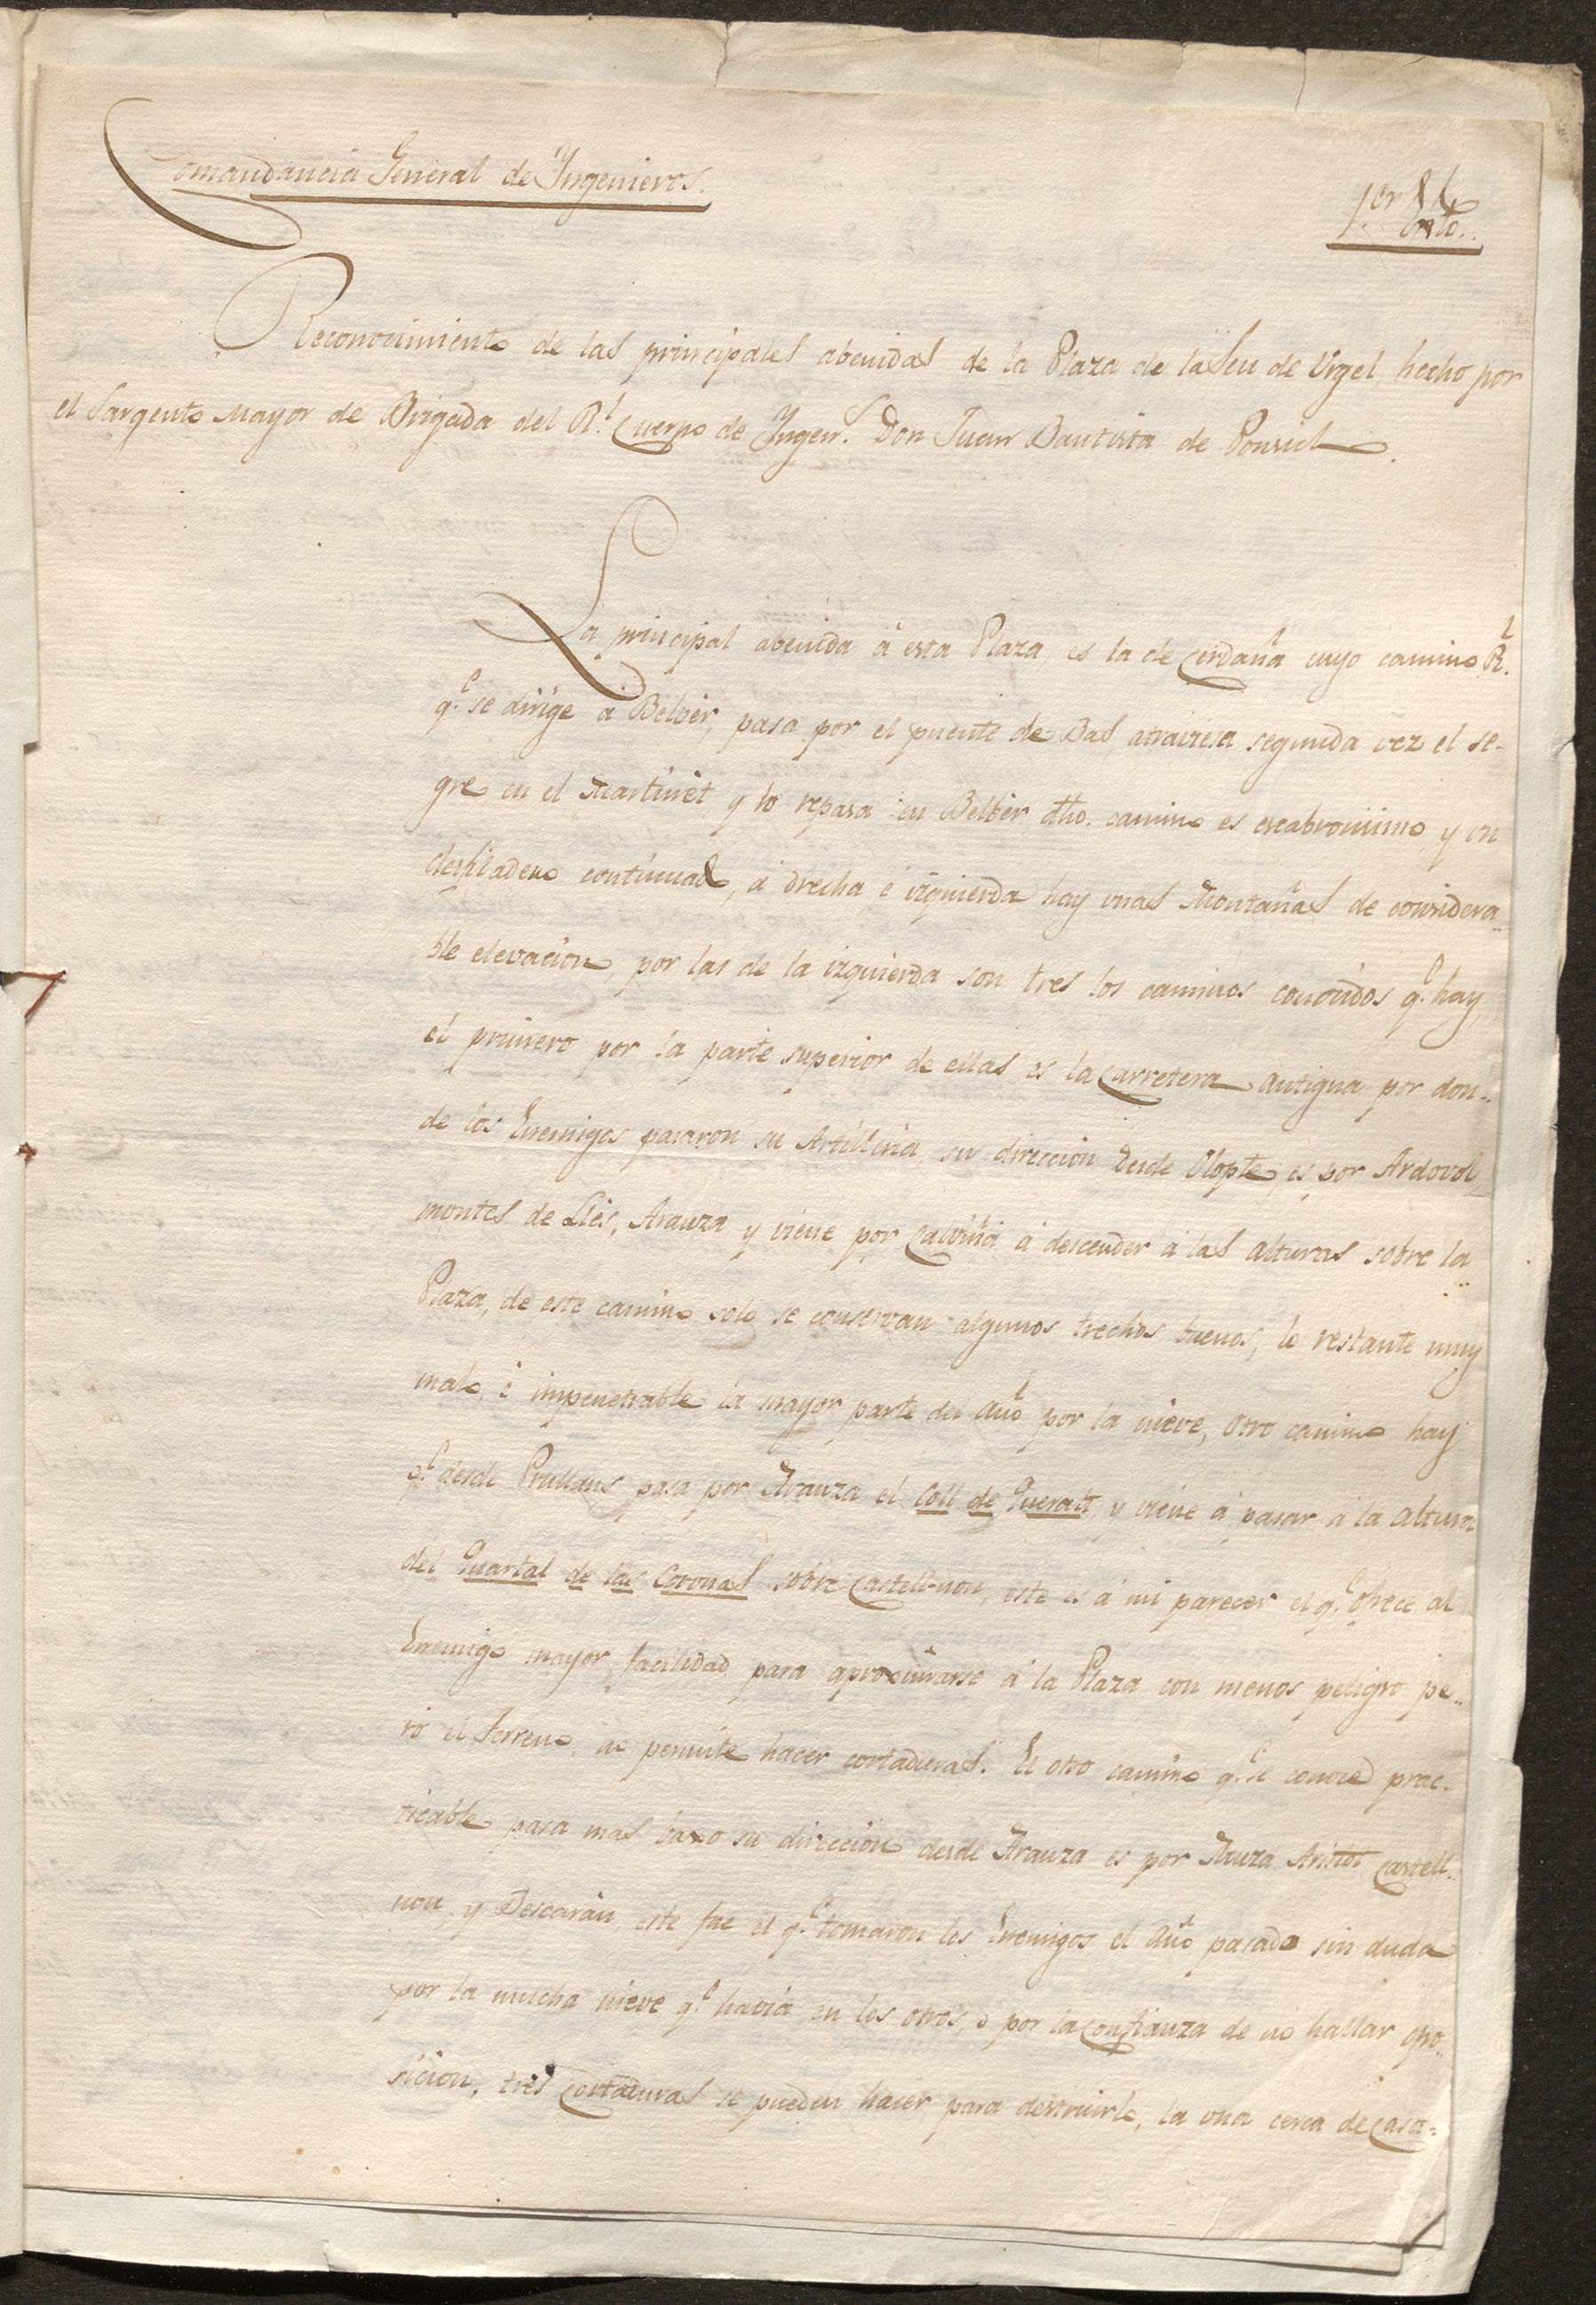 Comandancia General de Yngenieros.
1.er
Reconocimiento de las principales abenidas de la Plaza de la Seu de Urgel, hecho por
el Sargento Mayor de Brigada del R.l Cuerpo de Yngen.s Don Juan Bautista de
La principal abenida á esta Plaza, es la de Cerdaña cuyo camino R.l
q.e se dirige á Belbèr, pasa por el puente de Bas atraviesa segunda vez el Se-
gre en el Martinèt y lo repasa en Belbèr, dho. camino es escabrosisimo y un
desfiladero continuado, á drecha é izquierda hay unas Montañas de considera-
ble elevacion, por las de la izquierda son tres los caminos conocidos q.e hay,
el primero por la parte superior de ellas es la Carretera antigua por don-
de los Enemigos pasaron su Artilleria, su direccion desde Olopte, es por Ardovol,
montes de Llès, Aranza y viene por Calviñá á descender á las alturas sobre la
Plaza, de este camino solo se conservan algunos trechos buenos, lo restante muy
malo, é impenetrable la mayor parte del Año por la nieve, otro camino hay
q.e desde Prullans pasa por Aranza el Coll de Queralt, y viene á pasar á la altura
del Quartal de las Coronas sobre Castell-nou, este es á mi parecer el q.e ofrece al
Enemigo mayor facilidad para aproximarse á la Plaza con menos peligro pe-
ro el terreno, no permite hacer cortaduras. El otro camino q.e se conoce prac-
ticable pasa mas baxo su direccion desde Aranza es por Muza Aristot Castell-
nou, y Bescaràn, este fue el q.e tomaron los Enemigos el Año pasado sin duda
por la mucha nieve q.e havia en los otros, o por la confianza de no hallar opo-
sicion, tres Cortaduras se pueden hacer para destruirlo, la una cerca de Casa-